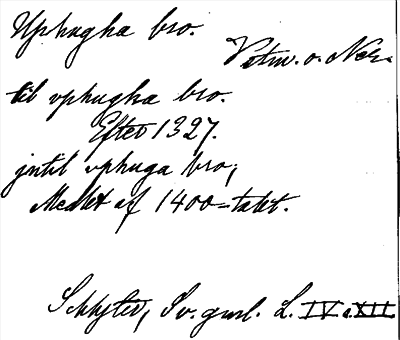 Uphugha bro.
Vstm. o. Ner.
til vphugha bro.
Efter 1327.
jntil vphuga bro,
Medlet af 1400-talet.
Schlyter, Sv. gml. L. IV o. XII.